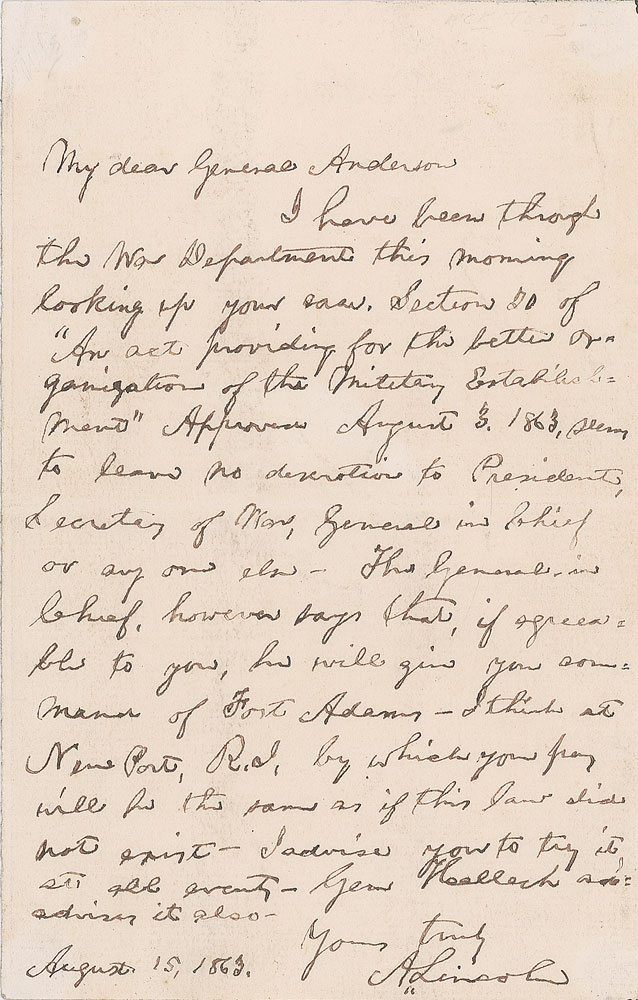 My dear General Anderson
I have been through
the War Department this morning
looking up your case. Section 20 of
"An act providing for the better or=
ganization of the Military Establish=
ment" Approved August 3. 1863, seems
to leave no discretion to President,
Secretary of War, General in Chief
or any one else – The General-in
Chief, however says that, if agreea=
ble to you, he will give you com=
mand of Fort Adams – I think at
New Port, R.I, by which you pay
will be the same as if this law did
not exist – I advise you to try it
at all events – Gen Halleck ad=
advises it also –
Yours truly
August 15, 1863. A. Lincoln